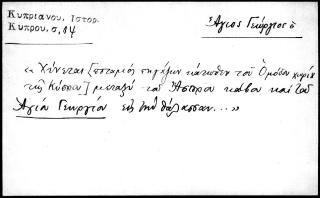 Κυπριανου. Ιστορ.
Κυπρου. σ, 14
Ἅγιος Γεώργιος ὁ
« Χύνεται [ποταμὸς πηγάζων κάτωθεν τοῦ Ὁμόδου χωρίου
τῆς Κύπρου] μεταξὺ τοῦ Ἄσπρου κάβου καὶ τοῦ
Ἁγίου Γεωργίου εἰς τὴν θάλασσαν... »